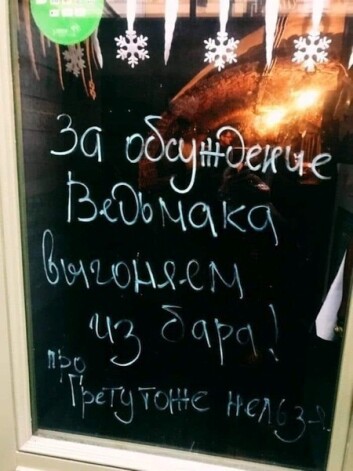 За обсуждение
Ведьмака
выгоняем
из бара!
про
Грету тоже нельзя.